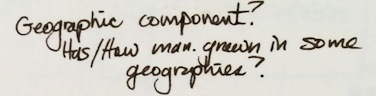 Geographic component?
Has/How man. grown in some
geographies?